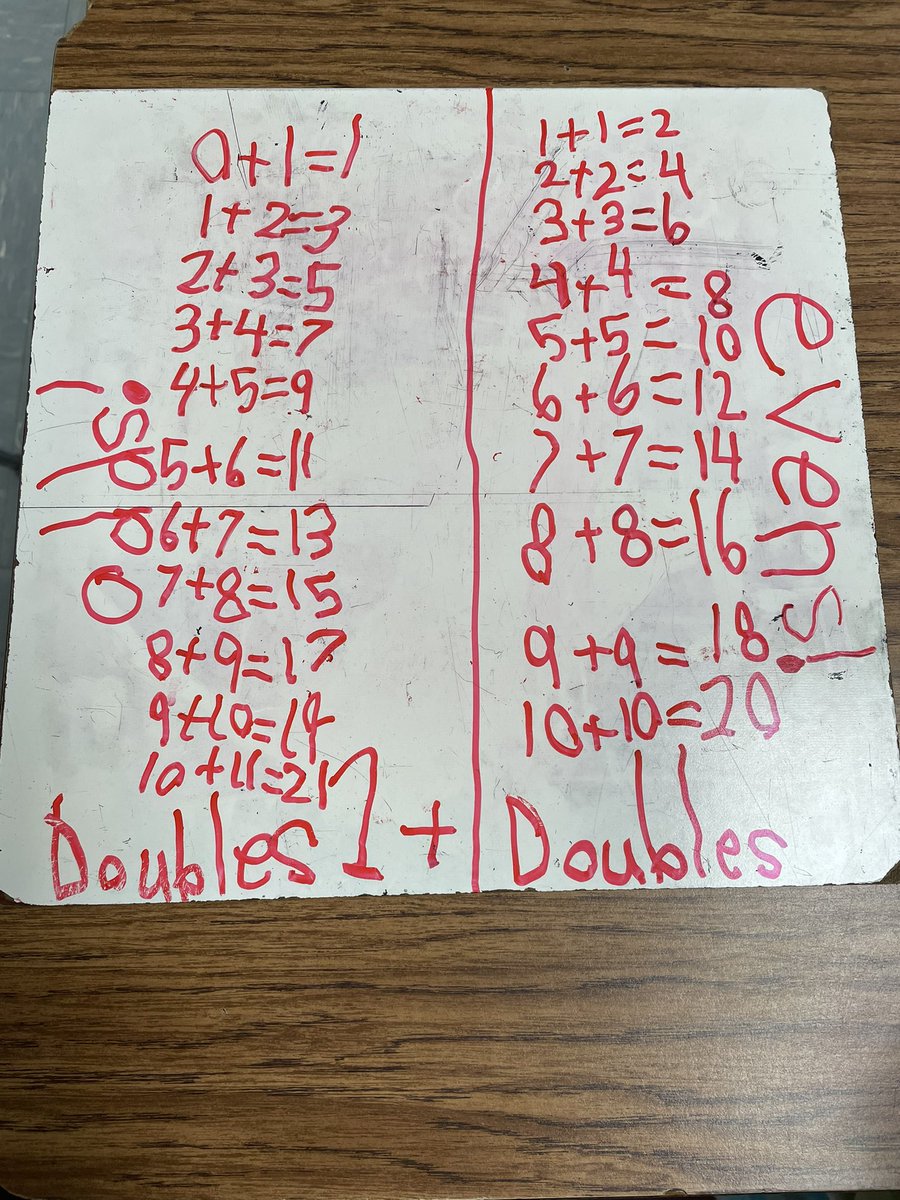 0+1=1
1+2=3
2+3=5
3+4=7
4+5=9
5+6=11
6+7=13
7+8=15
8+9=17
9+10=19
10+11=21
Doubles 1 +
odds!
1+1=2
2+2=4
3+3=6
4+4=8
5+5=10
6+6=12
7+7=14
8+8=16
9+9=18
10+10=20
Doubles
evens!